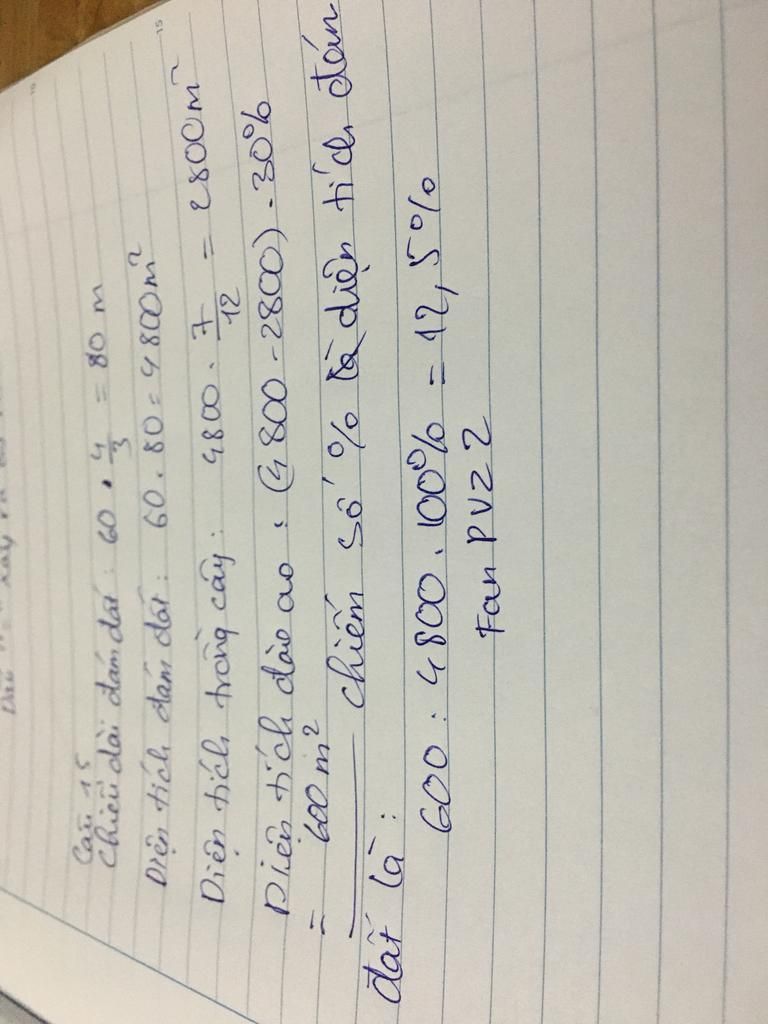 Câu 15
Chiều dài đám đất : 60 . 4/3 = 80 m
Diện tích đám đất : 60 . 80 = 4800m²
Diện tích trồng cây : 4800 . 7/12 = 2800m²
Diện tích đào ao : (4800 - 2800) . 30%
= 600m²
chiếm số % là diện tích đán
đất là :
600 : 4800 . 100% = 12,5%
Fan PVZ 2